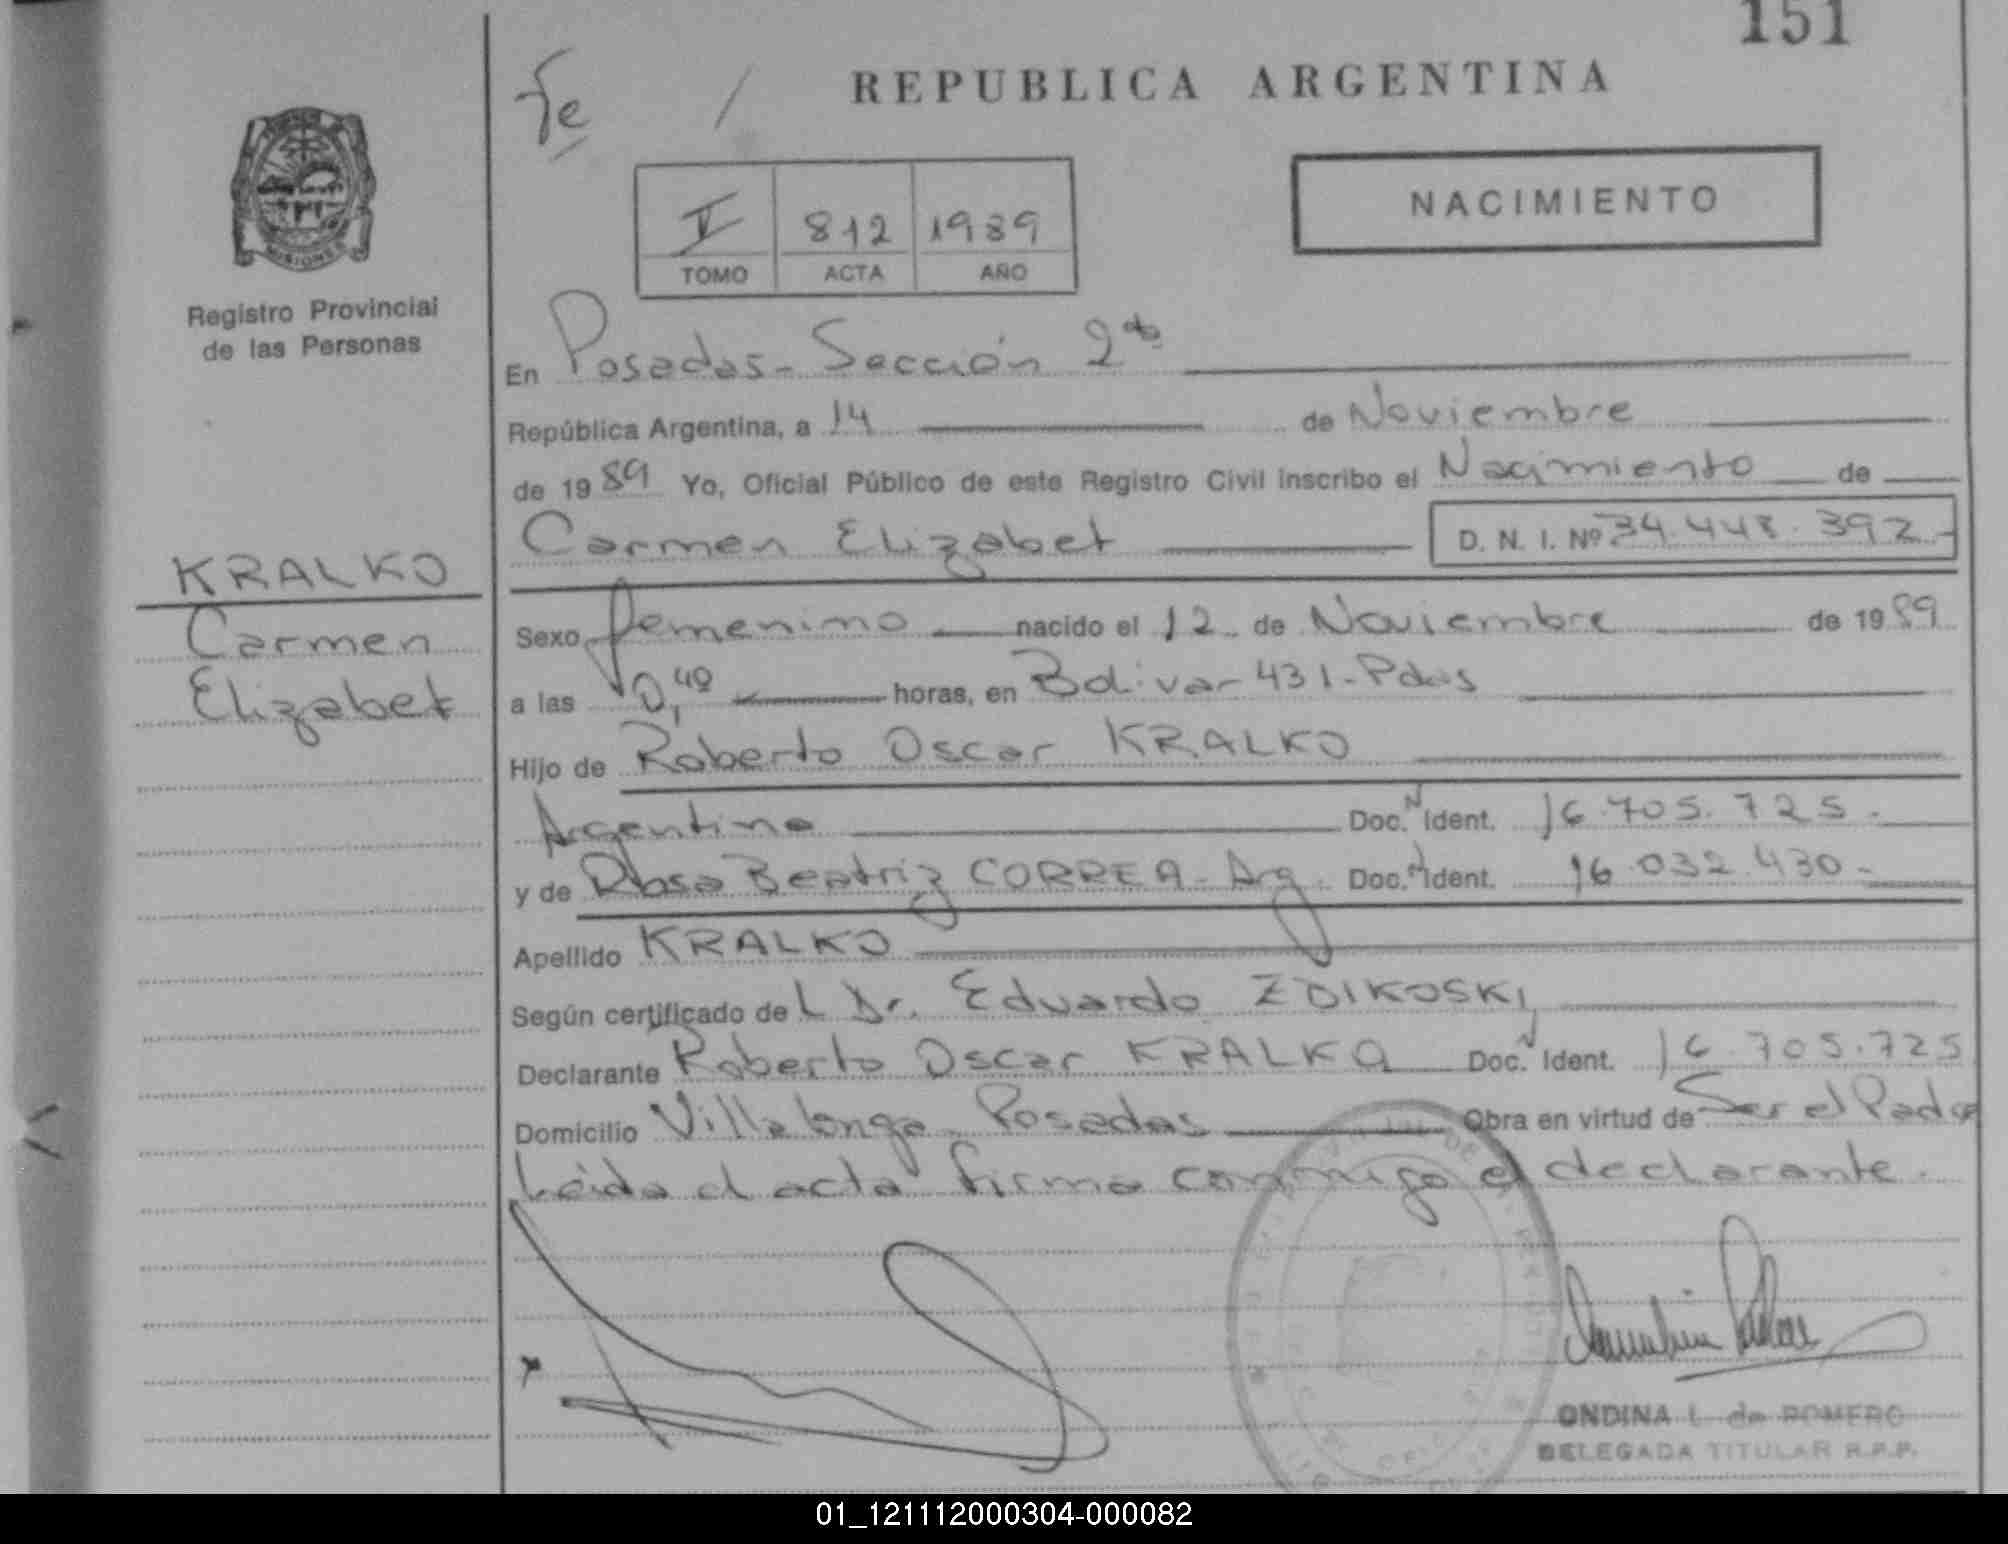 151
Fe /
REPUBLICA ARGENTINA
MISIONES
Registro Provincial
de las Personas
V 812 1989
TOMO ACTA AÑO
NACIMIENTO
En Posadas - Sección 2da
República Argentina, a 14 de Noviembre
de 1989 Yo, Oficial Público de este Registro Civil inscribo el Nacimiento de
Carmen Elizabet D. N. I. Nº 34.448.392-
KRALKO
Carmen
Elizabet
Sexo femenino nacido el 12 de Noviembre de 1989
a las 0,40 horas, en Bolivar 431-Pdas
Hijo de Roberto Oscar KRALKO
Argentino Doc. N Ident. 16.705.725.
y de Rosa Beatriz CORREA - Arg. Doc. N Ident. 16.032.430-
Apellido KRALKO
Según certificado de L Dr. Eduardo ZDIKOSKI
Declarante Roberto Oscar KRALKO Doc. N Ident. 16.705.725
Domicilio Villalonga - Posadas Obra en virtud de Ser el Padre
Leída el acta firma conmigo el declarante.
ONDINA I. de ROMERO
DELEGADA TITULAR R.P.P.
01_121112000304-000082